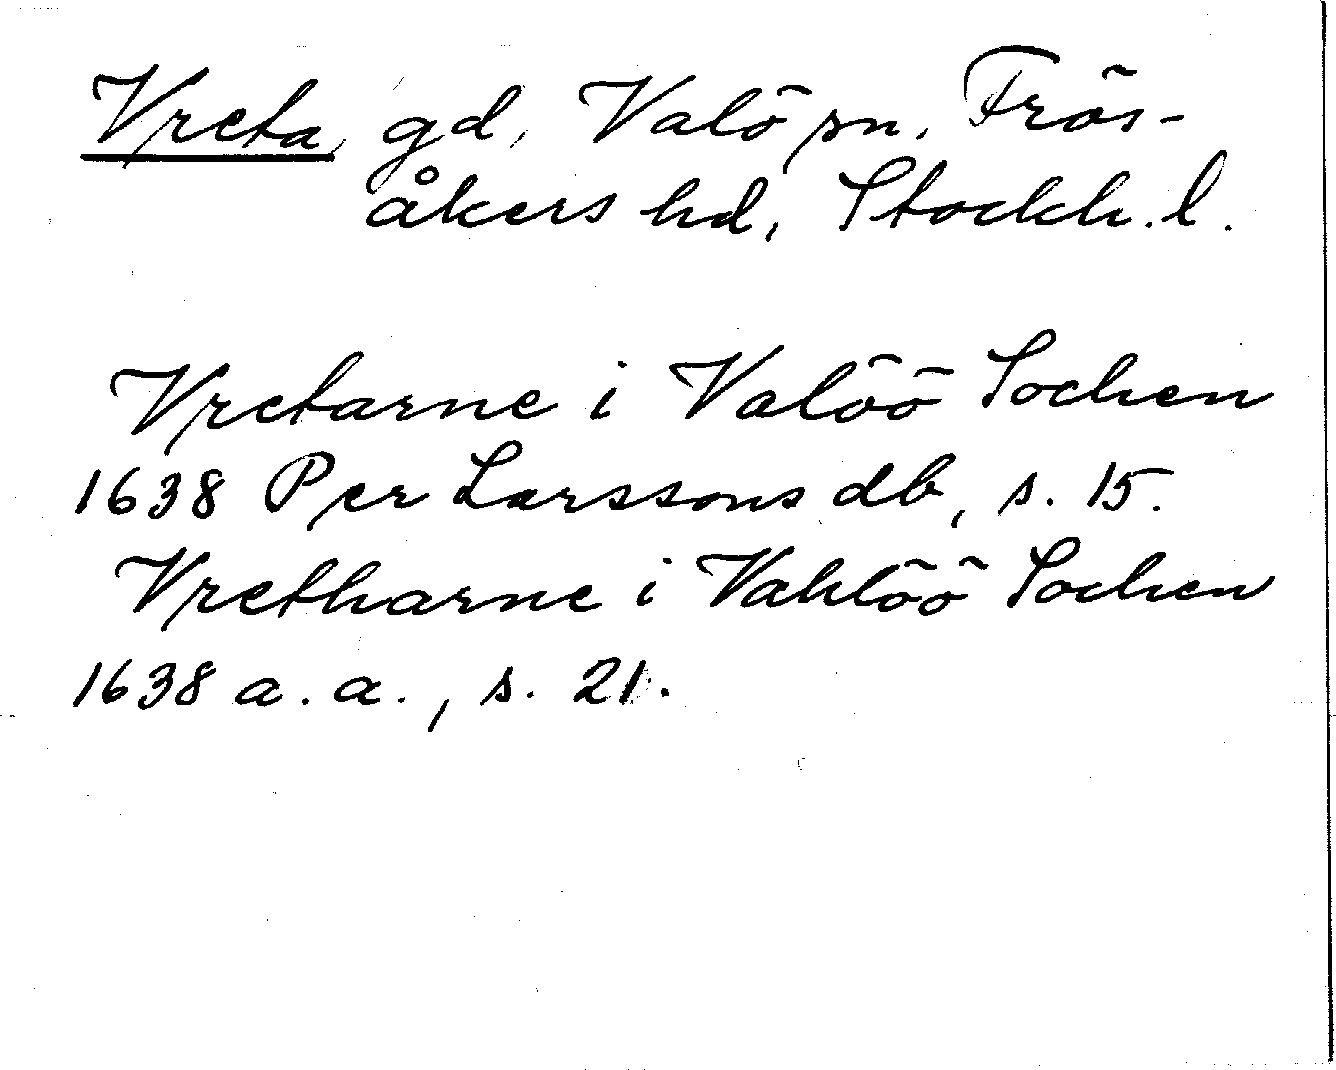 Vreta, gd, Valö sn. Frös-
åkers hd, Stockh. l.
Vretarne i Valöö Sochen
1638 Per Larssons db, s. 15.
Vretharne i Vahlöö Sochen
1638 a. a., s. 21.